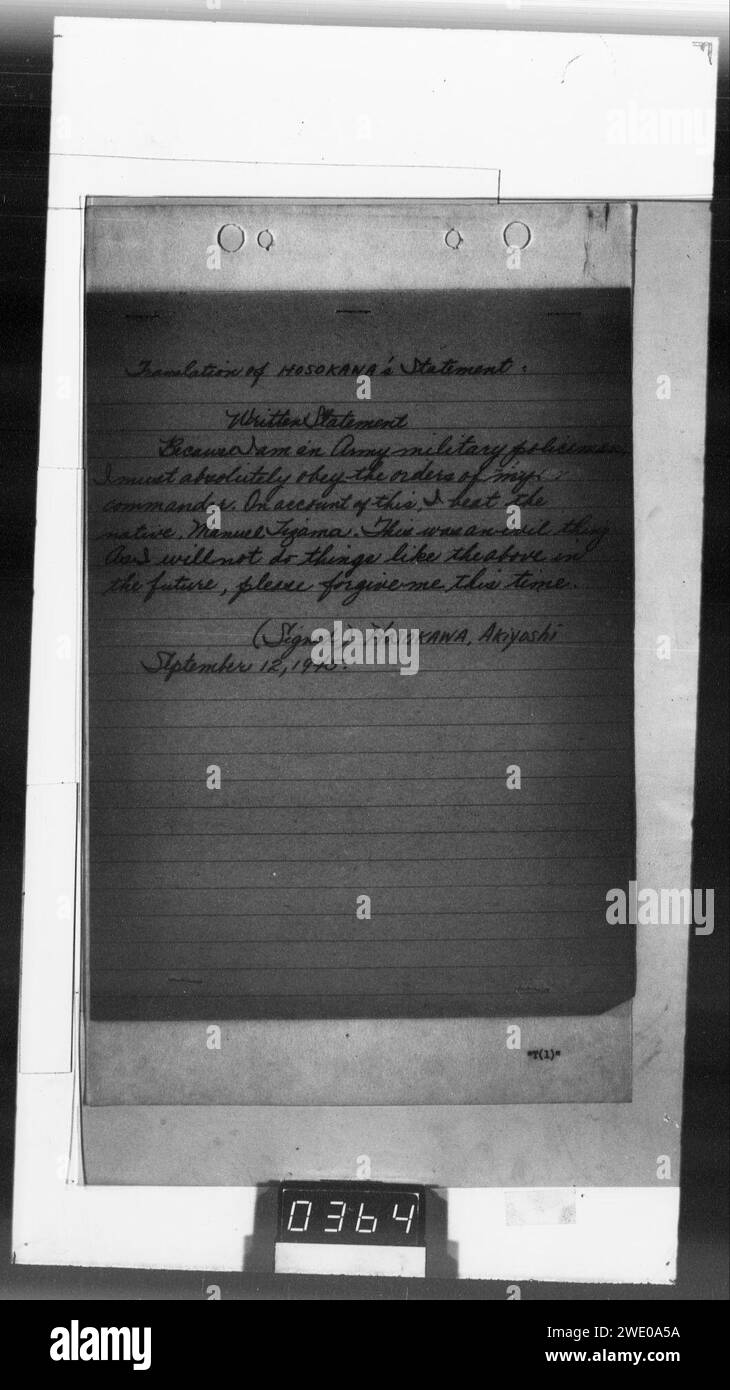 Translation of HOSOKANA's Statement:
Written Statement
Because I am an Army military policeman,
I must absolutely obey the orders of my
commander. On account of this, I beat the
native, Manuel Tizama. This was an evil thing
As I will not do things like the above in
the future, please forgive me this time.
(Signed) HOSOKAWA, Akiyoshi
September 12, 1945.
"T(1)"
0364
alamy
Image ID: 2WE0A5A
www.alamy.com